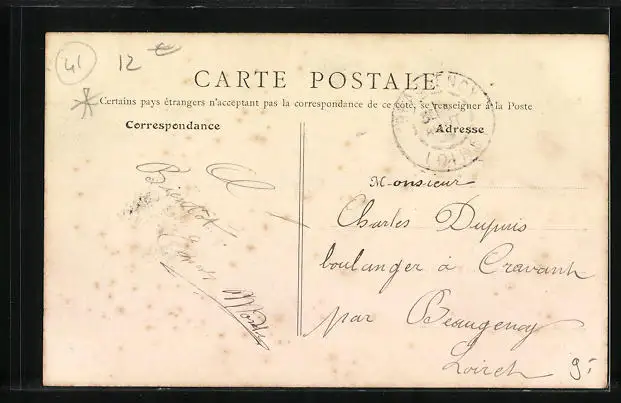 41 12 €
CARTE POSTALE
* Certains pays étrangers n'acceptant pas la correspondance de ce côté, se renseigner à la Poste
Correspondance
Adresse
A
Bientôt
Monsieur
Charles Dupuis
boulanger à Cravant
par Beaugency
Loiret
BEAUGENCY
LOIRET
9.